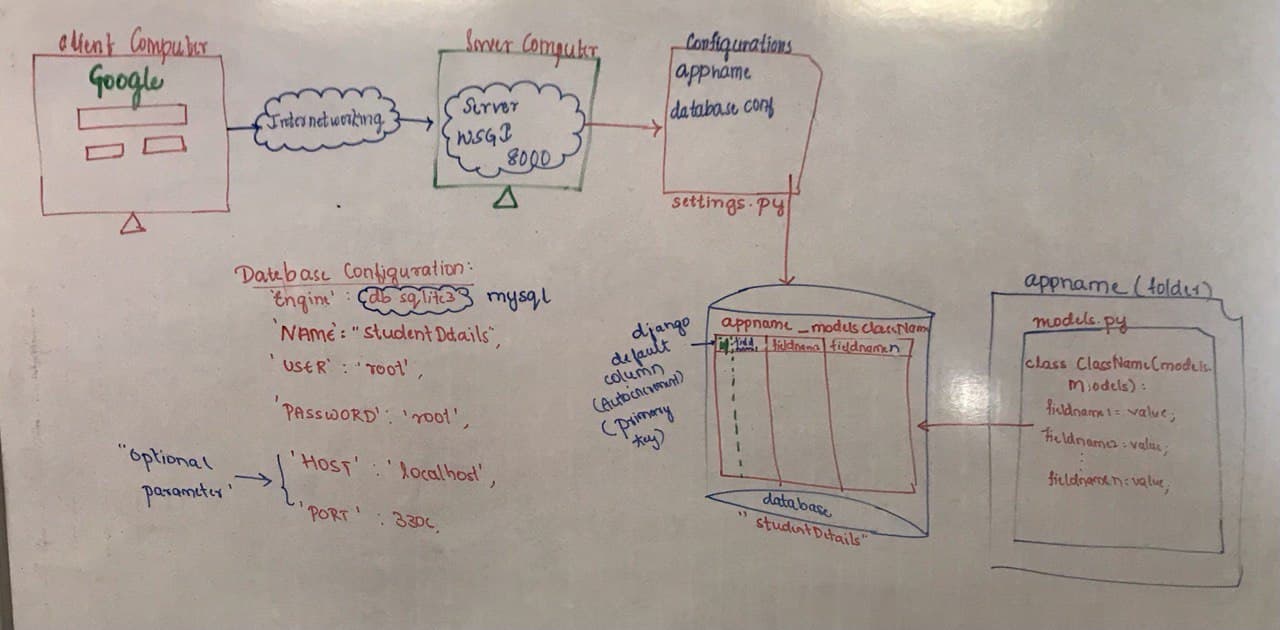 client Computer
Google
Internetworking
Server Computer
Server
WSGI
8000
Configurations
appname
database conf
settings.py
Database Configuration:
'Engine' : db sqlite3 mysql
'NAME': "studentDetails",
'USER' : 'root',
'PASSWORD' : 'root',
"optional
parameter'
'HOST' : 'localhost',
'PORT' : 330
django
default
column
(Autoincrement)
(primary
key)
appname_modelsclassNam
fieldnamen
database
"studentDetails"
appname (folder)
models.py
class ClassName(models.
Models):
fieldname1= value;
fieldname2=value;
fieldnamen=value;